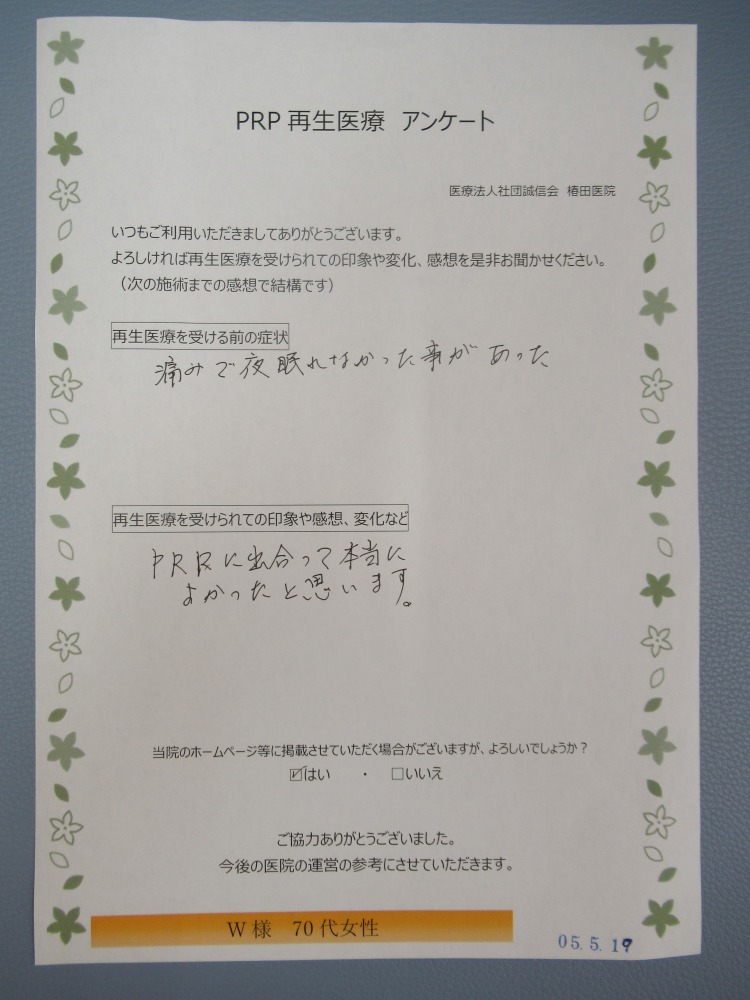 PRP 再生医療 アンケート
医療法人社団誠信会 椿田医院
いつもご利用いただきましてありがとうございます。
よろしければ再生医療を受けられての印象や変化、感想を是非お聞かせください。
（次の施術までの感想で結構です）
再生医療を受ける前の症状
痛みで夜眠れなかった事があった
再生医療を受けられての印象や感想、変化など
PRRに出合って本当に
よかったと思います。
当院のホームページ等に掲載させていただく場合がございますが、よろしいでしょうか？
☑はい ・ □いいえ
ご協力ありがとうございました。
今後の医院の運営の参考にさせていただきます。
W 様 70 代女性
05.5.19